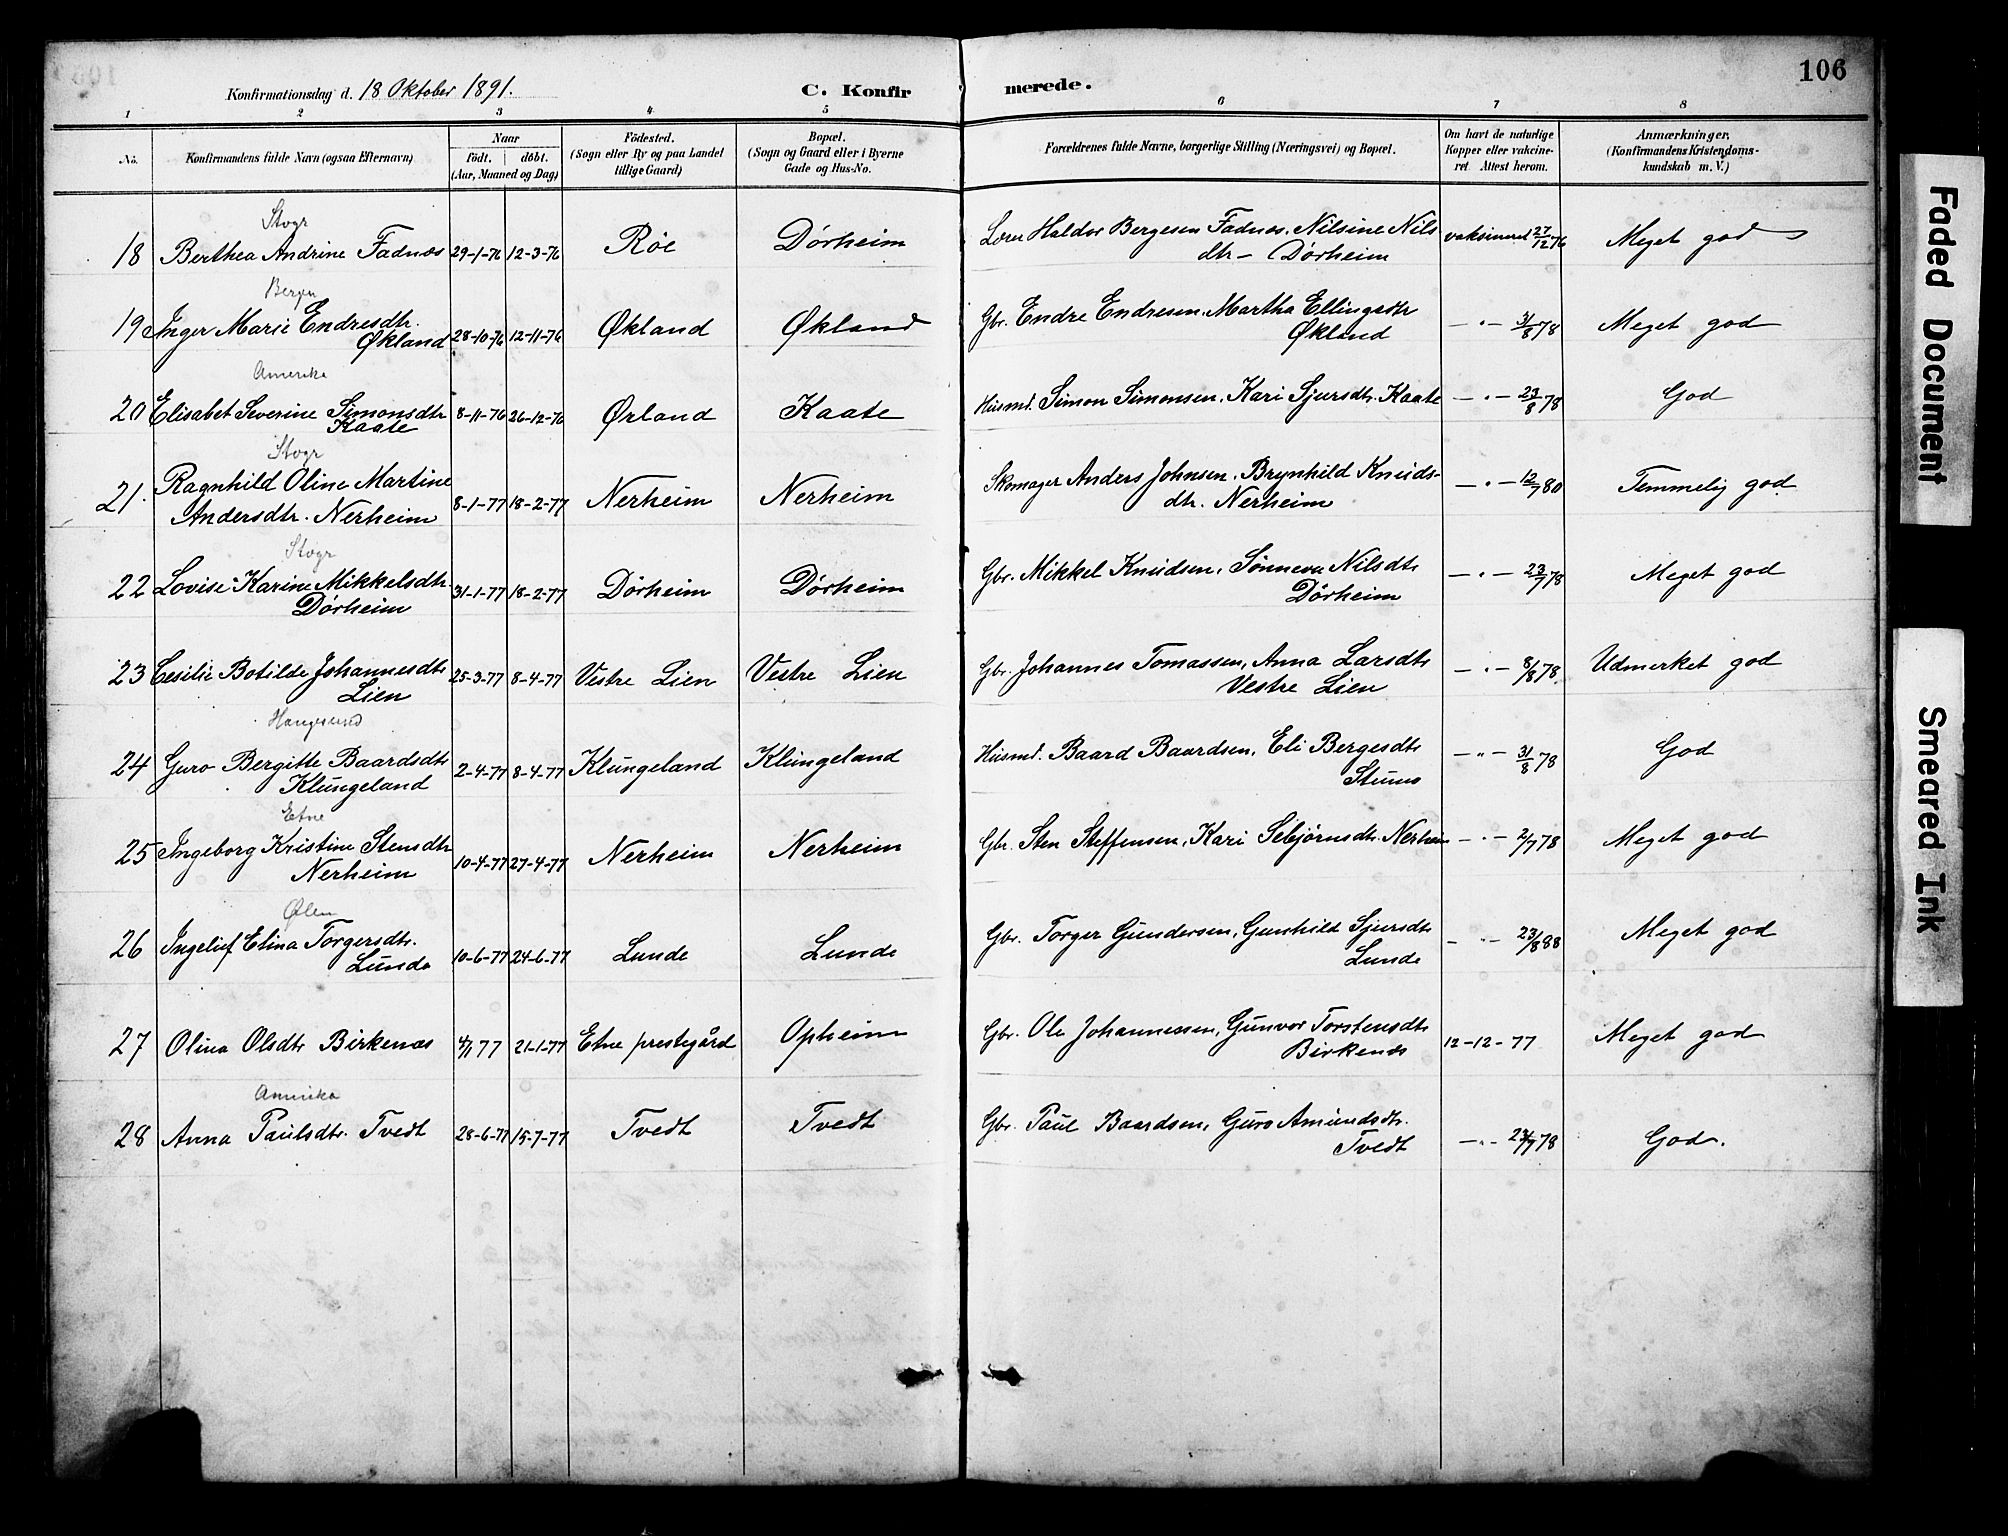 106
Konfirmationsdag d. 18 Oktober 1891.
C. Konfirmerede.
1 2 3 4 5 6 7 8
No.
Konfirmandens fulde Navn (ogsaa Efternavn)
Naar
födt. döbt.
(Aar, Maaned og Dag)
Födested.
(Sogn eller By og paa Landet
tillige Gaard)
Bopæl.
(Sogn og Gaard eller i Byerne
Gade og Hus-No.
Forældrenes fulde Navne, borgerlige Stilling (Næringsvei) og Bopæl.
Om havt de naturlige
Kopper eller vakcine-
ret Attest herom.
Anmærkninger,
(Konfirmandens Kristendoms-
kundskab m. V.)
Stogr
18 Berthea Andrine Fadnæs 29-1-76 12-3-76 Röe Dörheim Haldor Bergesen Fadnæs. Nilsine Nils
dtr - Dörheim vaksineret 27/12 76 Meget god
Bergen
19 Inger Marie Endresdtr.
Økland 28-10-76 12-11-76 Økland Økland Gbr. Endre Endresen, Martha Ellingsdtr
Økland - " - 31/8 78 Meget god
Amerika
20 Elisabet Severine Simonsdtr
Kaate 8-11-76 26-12-76 Ørland Kaate Husmd. Simon Simonsen, Kari Sjursdtr. Kaate - " - 23/8 78 God
Stogr
21. Ragnhild Oline Martine
Andersdtr. Nerheim 8-1-77 18-2-77 Nerheim Nerheim Skomager Anders Johnsen, Brynhild Knuds-
dtr. Nerheim - " - 12/7 80 Temmelig god
Stogr
22 Lovise Karine Mikkelsdtr.
Dörheim 31-1-77 18-2-77 Dörheim Dörheim Gbr. Mikkel Knudsen, Sönneva Nilsdtr
Dörheim - " - 23/7 78 Meget god
23 Cesilie Botilde Johannesdtr
Lien 25-3-77 8-4-77 Vestre Lien Vestre Lien Gbr. Johannes Tomassen, Anna Larsdtr
Vestre Lien - " - 8/8 78 Udmerket god
Haugesund
24 Guro Bergitte Baardsdtr
Klungeland 2-4-77 8-4-77 Klungeland Klungeland Husmd. Baard Baardsen, Eli Bergesdtr
- " - 31/8 78 God
Etne
25 Ingeborg Kristine Stensdtr
Nerheim 10-4-77 27-4-77 Nerheim Nerheim Gbr. Sten Steffensen, Kari Sebjörnsdtr. Nerheim - " - 2/7 78 Meget god
Ølen
26 Elina Torgersdtr.
Lunde 10-6-77 24-6-77 Lunde Lunde Gbr. Torger Gundersen, Gunhild Sjursdtr
Lunde - " - 23/8 88 Meget god
27 Olina Olsdtr Birkenæs 4/1 77 21-1-77 Etne prestegård Opheim Gbr. Ole Johannessen, Gunvor Torstensdtr
Birkenæs 12-12-77 Meget god
Amerika
28 Anna Paulsdtr. Tvedt 28-6-77 15-7-77 Tvedt Tvedt Gbr. Paul Baardsen, Guro Amundsdtr.
Tvedt - " - 23/7 78 God.
Faded Document
Smeared Ink